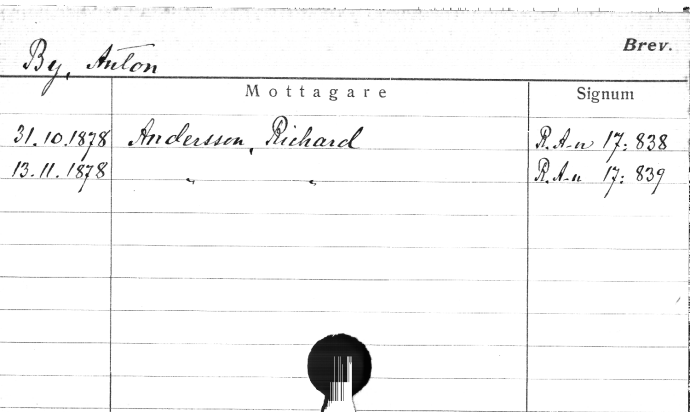 Brev.
By, Anton
Mottagare Signum
31.10.1878 Andersson, Richard R.A-n 17: 838
13.11.1878 " " R.A-n 17: 839